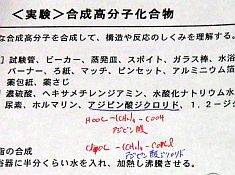 ＜実験＞合成高分子化合物
な合成高分子を合成して、構造や反応のしくみを理解する。
］試験管、ビーカー、蒸発皿、スポイト、ガラス棒、水浴
バーナー、ろ紙、マッチ、ピンセット、アルミニウム箔
薬包紙、薬さじ
］濃硫酸、ヘキサメチレンジアミン、水酸化ナトリウム水
尿素、ホルマリン、アジピン酸ジクロリド、１，２－ジク
HOOC-(CH2)4-COOH
アジピン酸
ClOC-(CH2)4-COCl
アジピン酸ジクロリド
脂の合成
浴器に半分くらい水を入れ、加熱し沸騰させる。